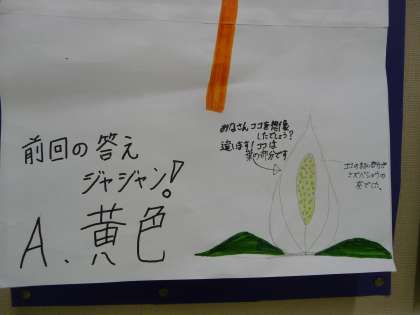 前回の答え
ジャジャン!
A.黄色
みなさんココを想像
したでしょう?
違います!ココは
葉の部分です
ココの黄色い部分が
ミズバショウの
花でした。